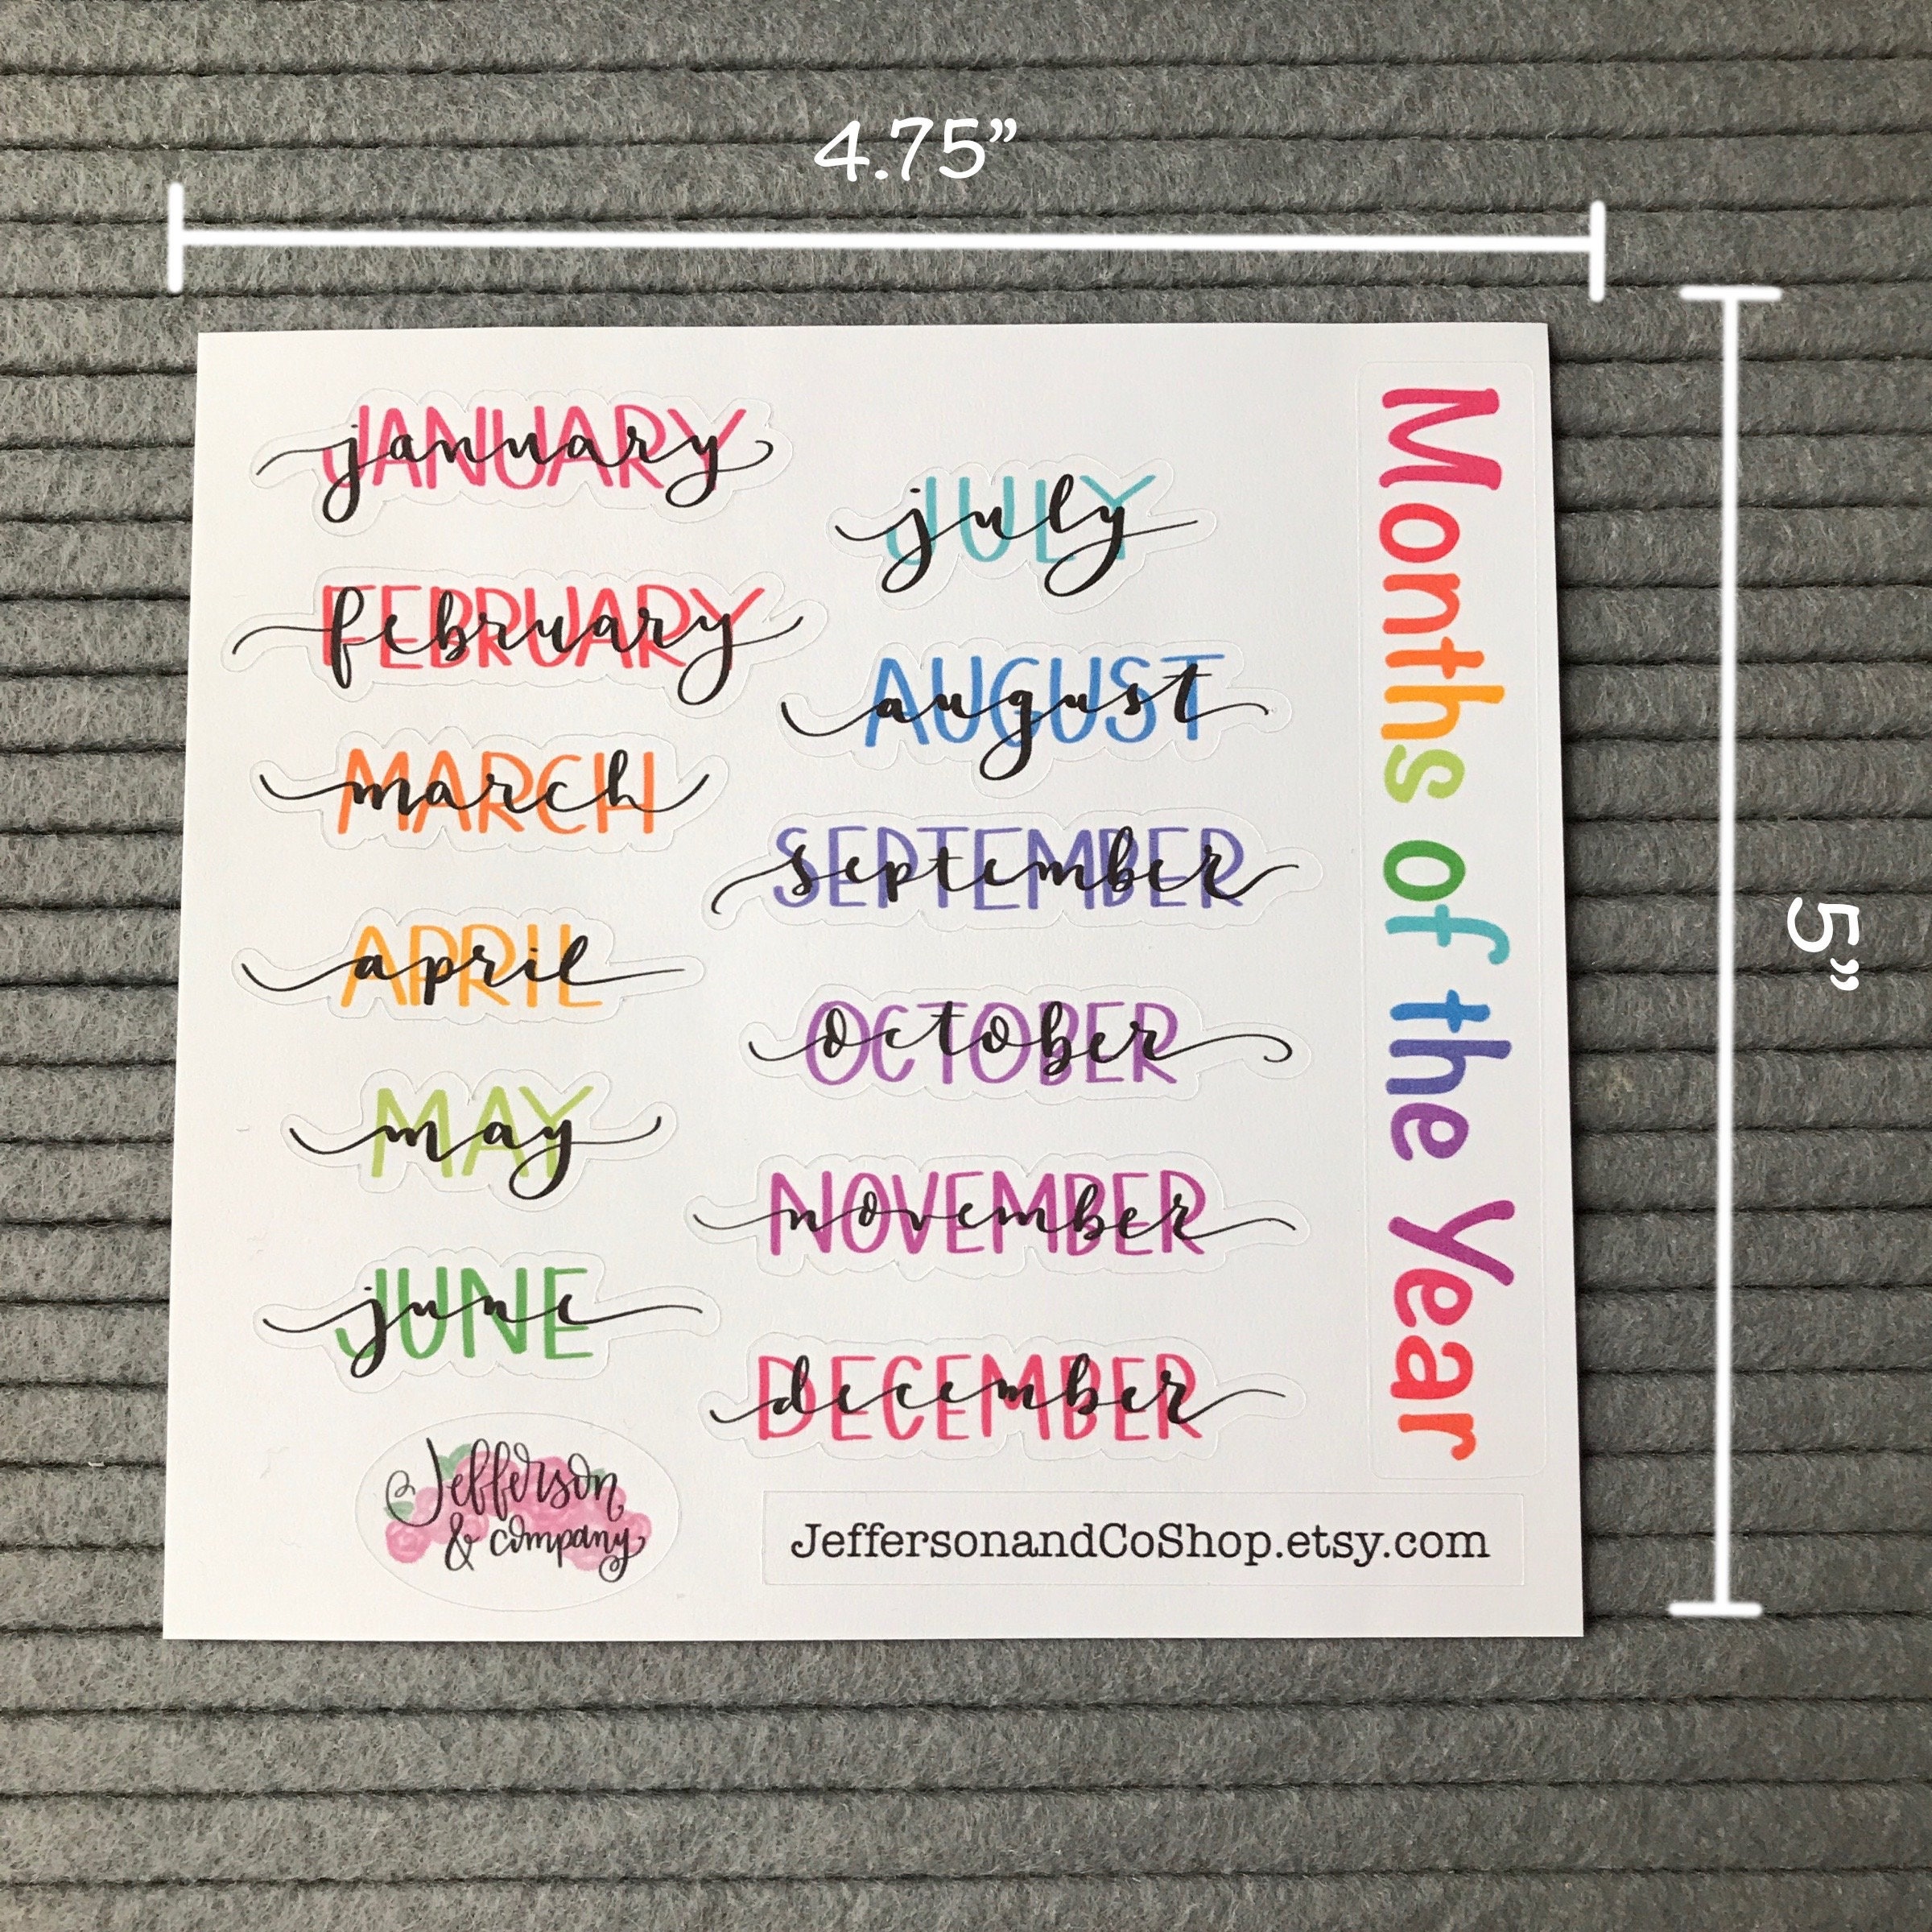 4.75”
JANUARY
january
FEBRUARY
february
MARCH
march
APRIL
april
MAY
may
JUNE
june
JULY
july
AUGUST
august
SEPTEMBER
september
OCTOBER
october
NOVEMBER
november
DECEMBER
december
Months of the Year
5”
Jefferson
& company
JeffersonandCoShop.etsy.com